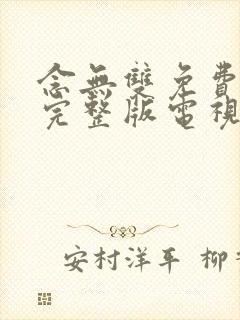 念無雙免費
完整版電視
安村洋平 柳